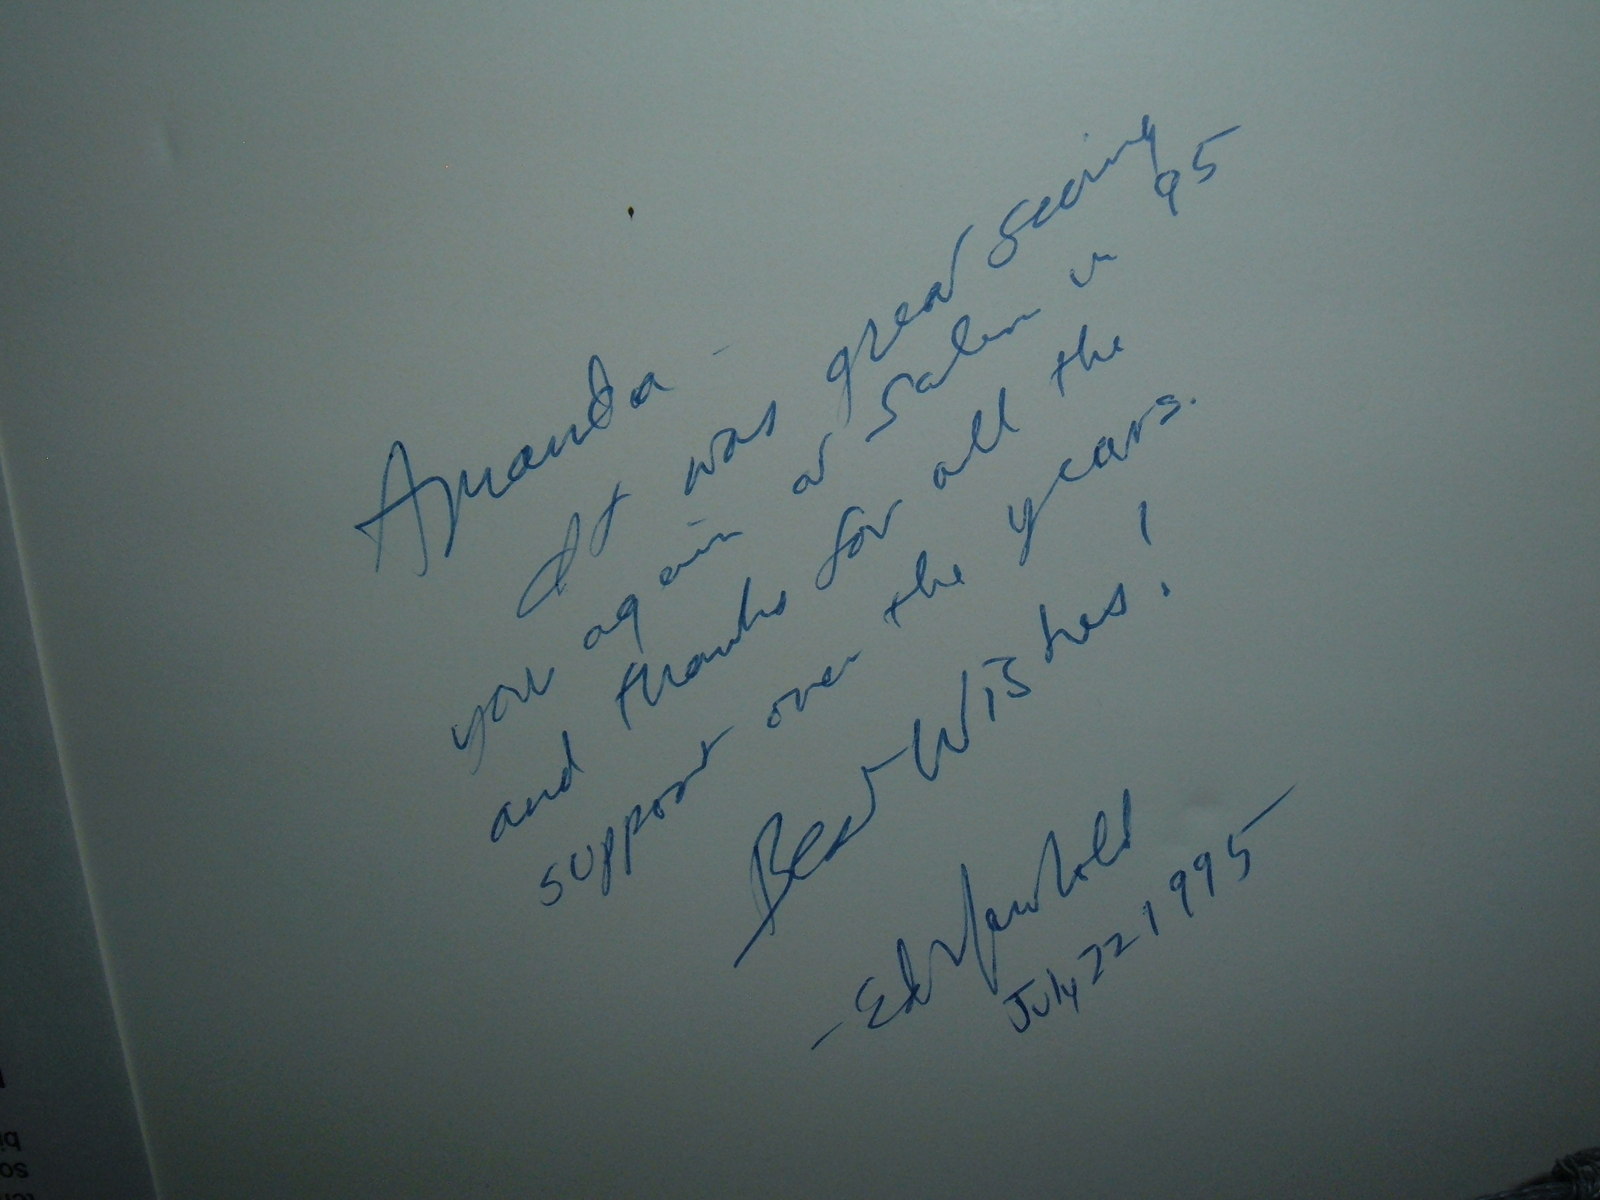 Amanda -
It was great seeing
you again at Salem in 95
and thanks for all the
support over the years.
Best Wishes!
- Ed
July 22 1995